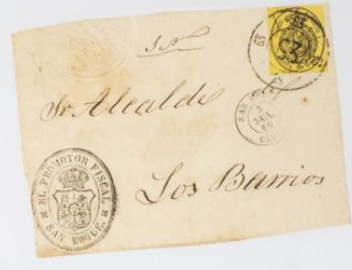 S.N.
63
Sr. Alcalde de
SAN ROQUE
Los Barrios
EL PROMOTOR FISCAL
SAN ROQUE.